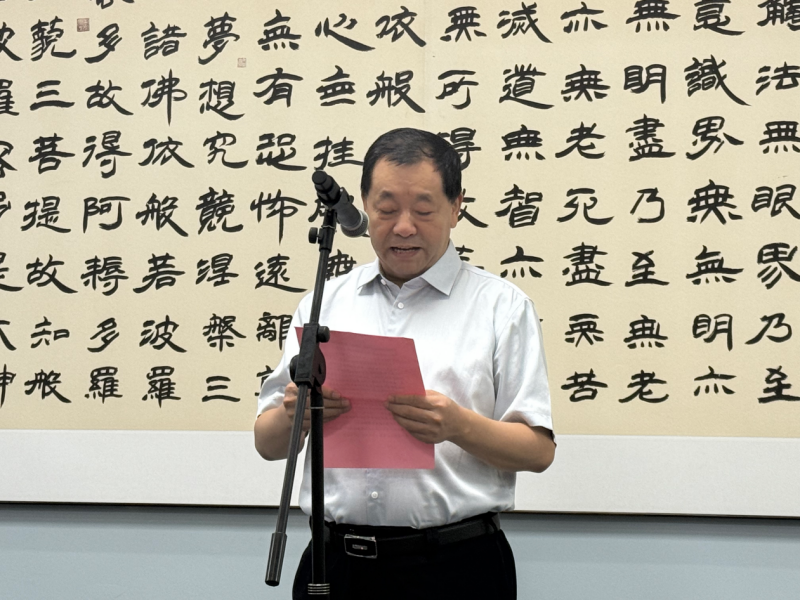 觸法無眼界乃至
意識界無無明亦
無明盡乃至無老
亦無老死盡無苦
滅道無智亦
無所得
依般
心無挂
無有恐怖遠離
夢想究競涅槃三
諸佛依般若波羅
多故得阿耨多羅
藐三菩提故知般
波羅蜜多是大神